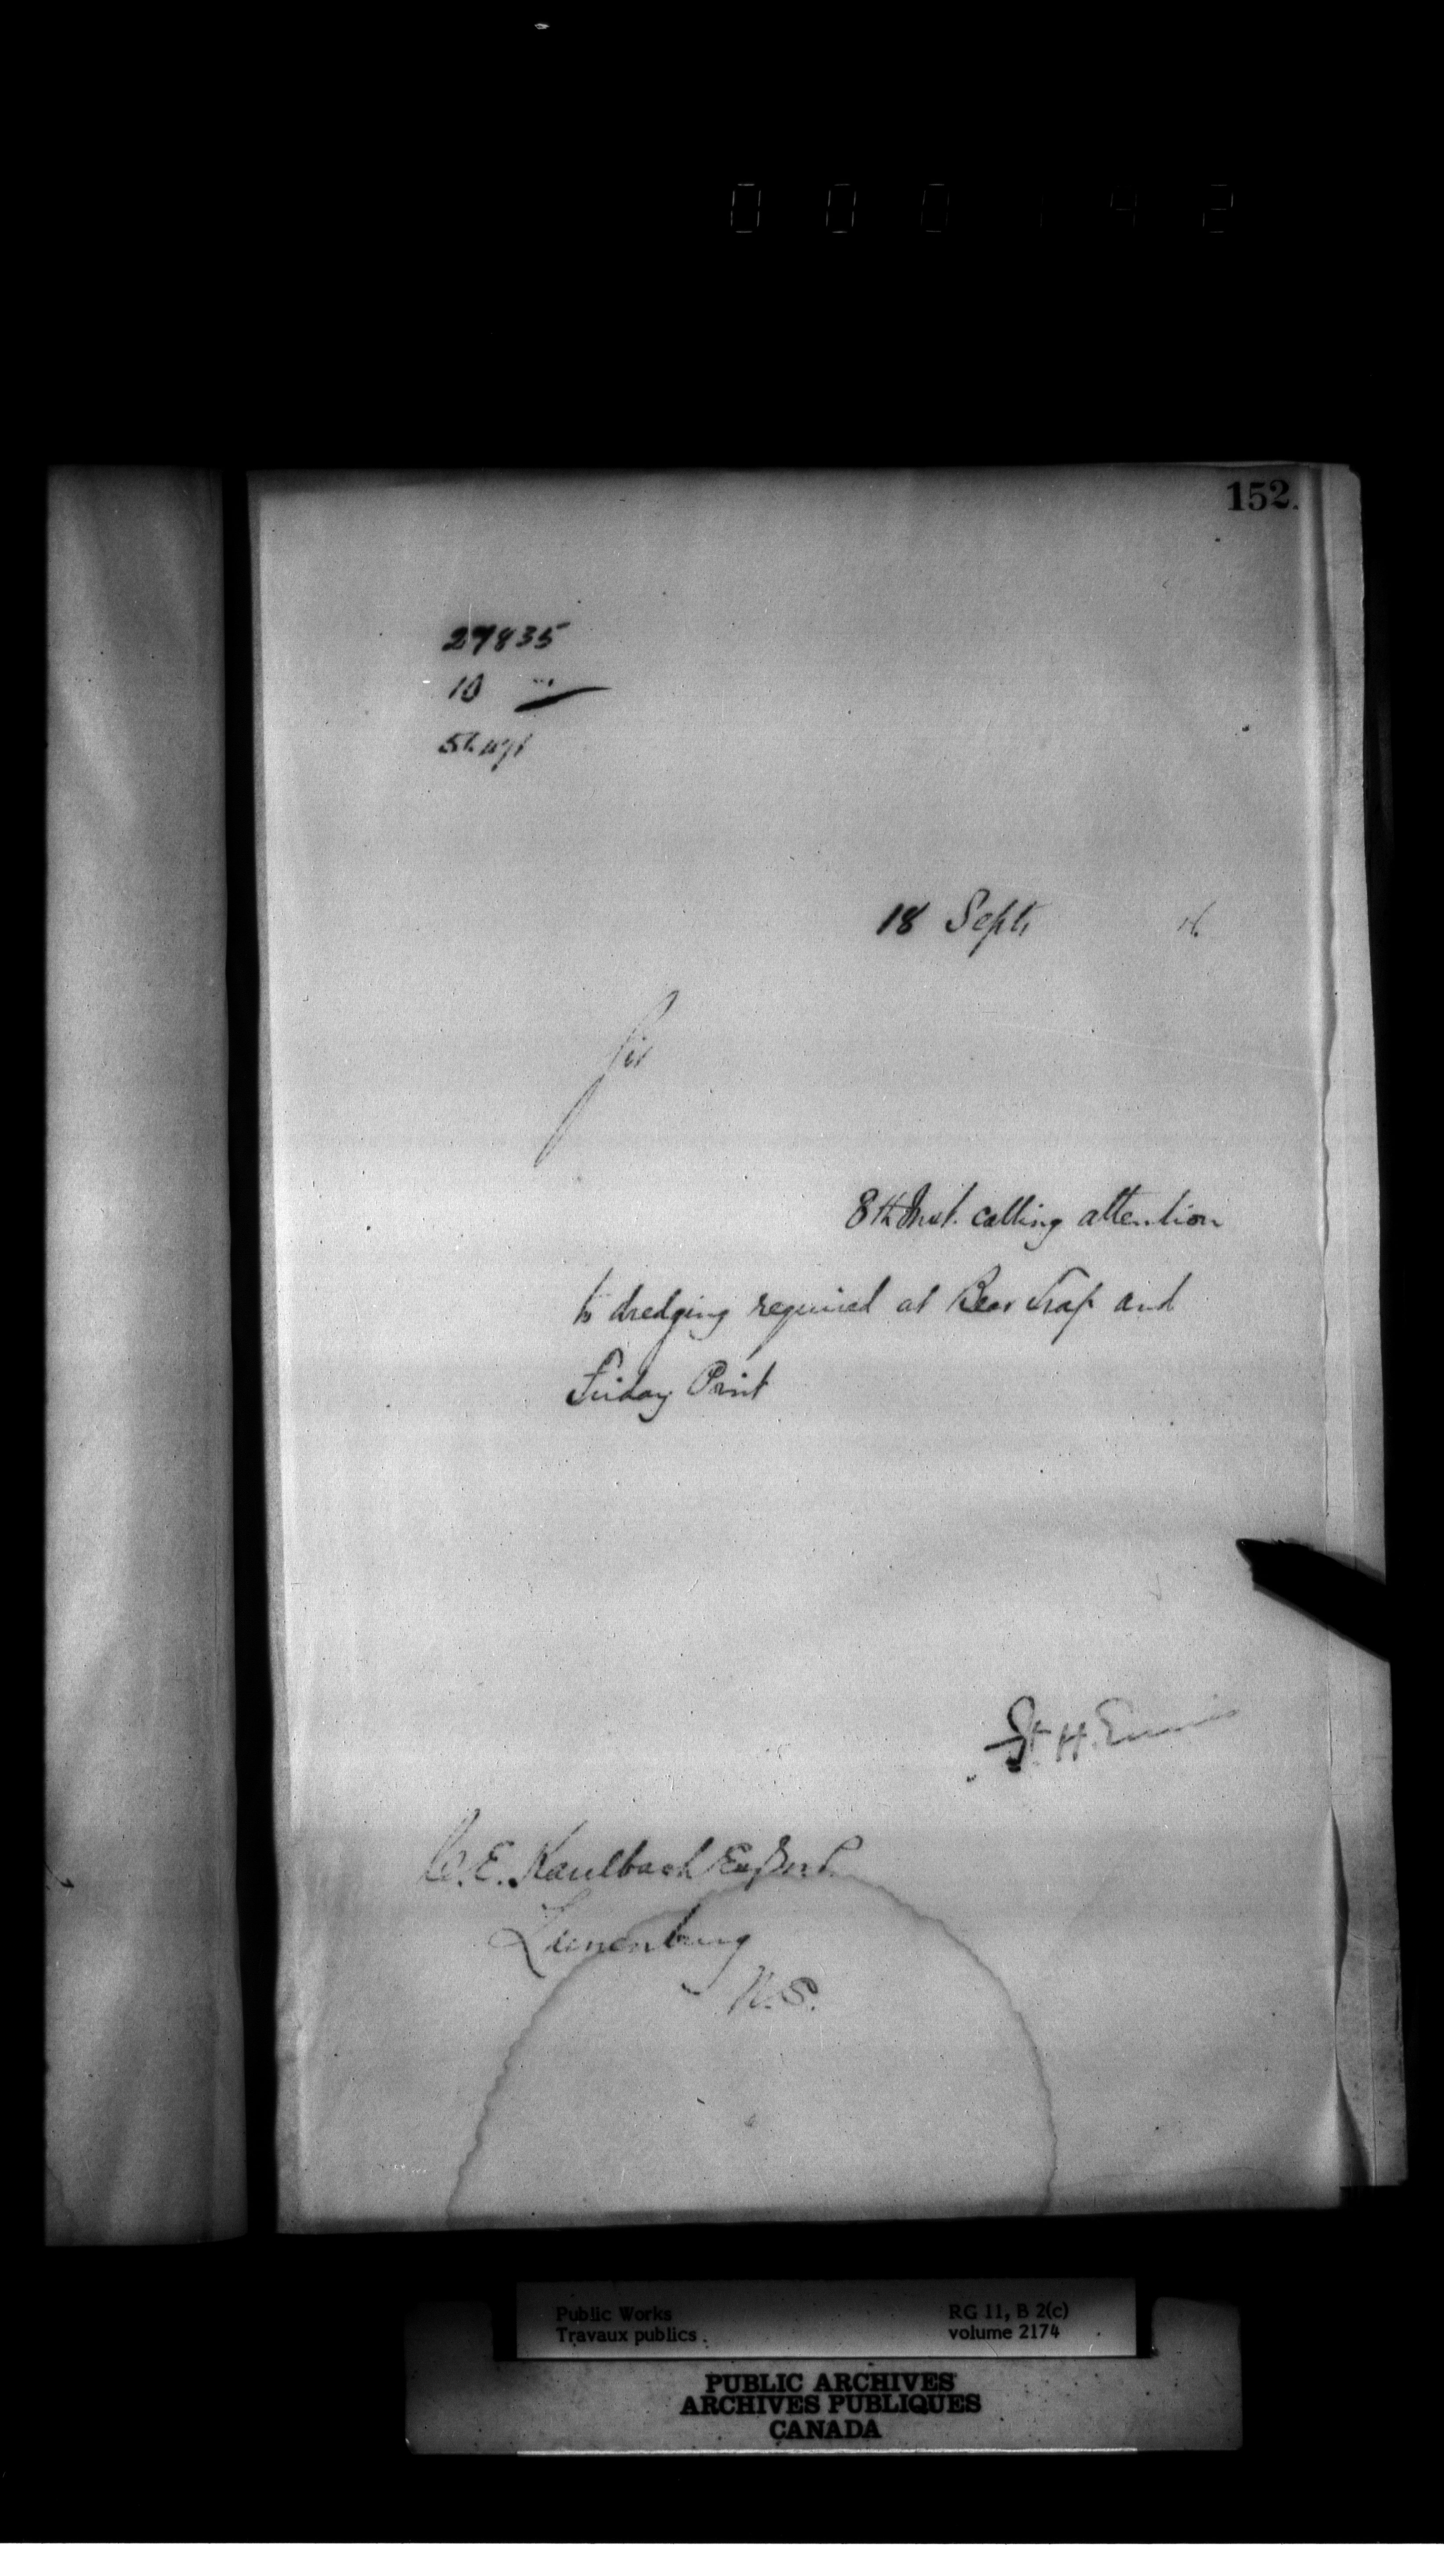 000142
152.
27835
10
18 Sept.
Sir
8th Inst. calling attention
to dredging required at Bear Trap and
Friday Point
C. E. Kaulbach Esq M.P.
Lunenburg
N.S.
Public Works
Travaux publics
RG 11, B 2(c)
volume 2174
PUBLIC ARCHIVES
ARCHIVES PUBLIQUES
CANADA